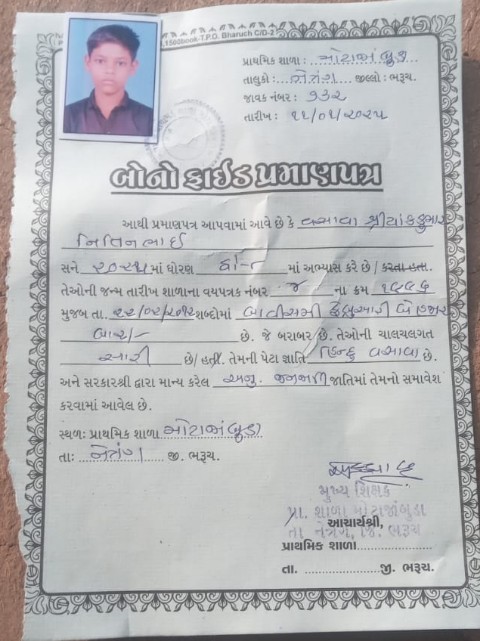 1560book-T.P.O. Bharuch C/D-2
પ્રાથમિક શાળા : મોટાજાંબુડા
તાલુકો : નેત્રંગ જીલ્લો : ભરૂચ.
જાવક નંબર : ૧૩૨
તારીખ :
બોનો ફાઈડ પ્રમાણપત્ર
આથી પ્રમાણપત્ર આપવામાં આવે છે કે વસાવા શ્રીયાંકકુમાર
નિતિનભાઈ
સને ૨૦૨૫ માં ધોરણ માં અભ્યાસ કરે છે / કરતા હતા.
તેઓની જન્મ તારીખ શાળાના વયપત્રક નંબર ૪ ના ક્રમ ૧૬૬૬
મુજબ તા. ૨૨/૦૨/૨૦૧૨ શબ્દોમાં બાવીસમી ફેબ્રુઆરી બે હજાર
બાર છે. જે બરાબર છે. તેઓની ચાલચલગત
સારી છે/હતી. તેમની પેટા જ્ઞાતિ હિન્દુ વસાવા છે.
અને સરકારશ્રી દ્વારા માન્ય કરેલ અનુ. જનજાતિ જાતિમાં તેમનો સમાવેશ
કરવામાં આવેલ છે.
સ્થળ: પ્રાથમિક શાળા મોટાજાંબુડા
તા: નેત્રંગ જી. ભરૂચ.
મુખ્ય શિક્ષક
પ્રા. શાળા મોટાજાંબુડા
આચાર્યશ્રી,
તા નેત્રંગ, જિ. ભરૂચ
પ્રાથમિક શાળા
તા. જી. ભરૂચ.